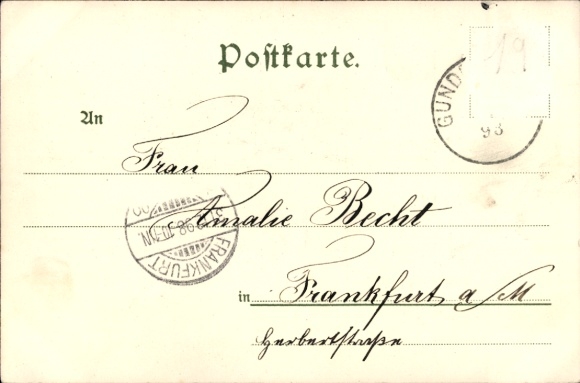 Postkarte.
19
GUND
93
An
Frau
Amalie Becht
FRANKFURT
in Frankfurt a/M
Herbertstraße